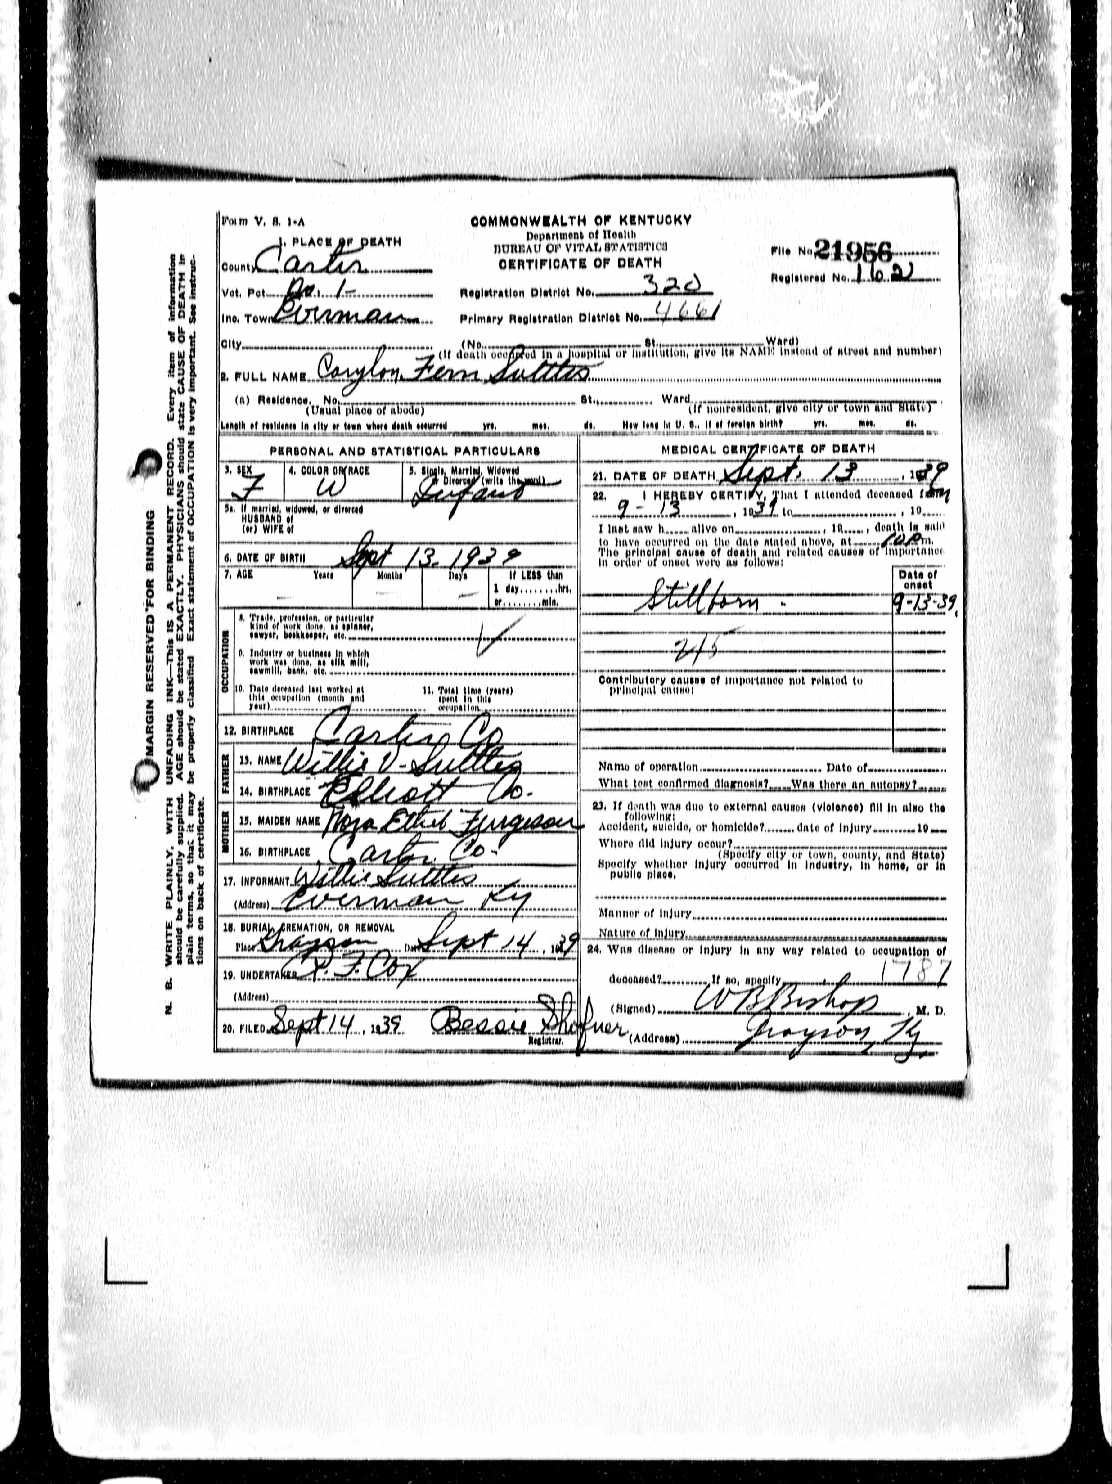 Form V. S. 1-A
COMMONWEALTH OF KENTUCKY
Department of Health
BUREAU OF VITAL STATISTICS
CERTIFICATE OF DEATH
File No. 21956
Registered No. 162
1. PLACE OF DEATH
County Carter
Vot. Pct. No. 1-
Inc. Town Everman
Registration District No. 320
Primary Registration District No. 4661
City (No. St. Ward)
(If death occurred in a hospital or institution, give its NAME instead of street and number)
2. FULL NAME Carylon Fern Suttles
(a) Residence. No. St., Ward.
(Usual place of abode) (If nonresident, give city or town and State)
Length of residence in city or town where death occurred yrs. mos. ds. How long in U. S., if of foreign birth? yrs. mos. ds.
PERSONAL AND STATISTICAL PARTICULARS
3. SEX F
4. COLOR OR RACE W
5. Single, Married, Widowed
or Divorced (write the word)
Infant
5a. If married, widowed, or divorced
HUSBAND of
(or) WIFE of
6. DATE OF BIRTH Sept 13. 1939
7. AGE Years Months Days If LESS than
1 day,........hrs.
or........min.
OCCUPATION
8. Trade, profession, or particular
kind of work done, as spinner,
sawyer, bookkeeper, etc.
9. Industry or business in which
work was done, as silk mill,
sawmill, bank, etc.
10. Date deceased last worked at
this occupation (month and
year)
11. Total time (years)
spent in this
occupation
12. BIRTHPLACE Carter Co
FATHER
13. NAME Willie V. Suttles
14. BIRTHPLACE Elliott Co.
MOTHER
15. MAIDEN NAME Nora Ethel Furgeson
16. BIRTHPLACE Carter Co-
17. INFORMANT Willie Suttles
(Address) Everman Ky
18. BURIAL, CREMATION, OR REMOVAL
Place Grayson Date Sept 14, 1939
19. UNDERTAKER R. F. Cox
(Address)
20. FILED Sept 14, 1939 Bessie Shofner
Registrar.
MEDICAL CERTIFICATE OF DEATH
21. DATE OF DEATH Sept. 13, 1939
22. I HEREBY CERTIFY, That I attended deceased from
9-13, 1939 to , 19
I last saw h alive on , 19 , death is said
to have occurred on the date stated above, at 10 P m.
The principal cause of death and related causes of importance
in order of onset were as follows:
Date of
onset
Stillborn. 9-13-39.
245
Contributory causes of importance not related to
principal cause:
Name of operation Date of
What test confirmed diagnosis? Was there an autopsy?
23. If death was due to external causes (violence) fill in also the
following:
Accident, suicide, or homicide? date of injury 19
Where did injury occur?
(Specify city or town, county, and State)
Specify whether injury occurred in industry, in home, or in
public place.
Manner of injury
Nature of injury
24. Was disease or injury in any way related to occupation of
deceased? If so, specify 1787
(Signed) W B Bishop, M. D.
(Address) Grayson, Ky.
MARGIN RESERVED FOR BINDING
N. B. WRITE PLAINLY, WITH UNFADING INK—This IS A PERMANENT RECORD. Every item of information
should be carefully supplied. AGE should be stated EXACTLY. PHYSICIANS should state CAUSE OF DEATH in
plain terms, so that it may be properly classified. Exact statement of OCCUPATION is very important. See instruc-
tions on back of certificate.